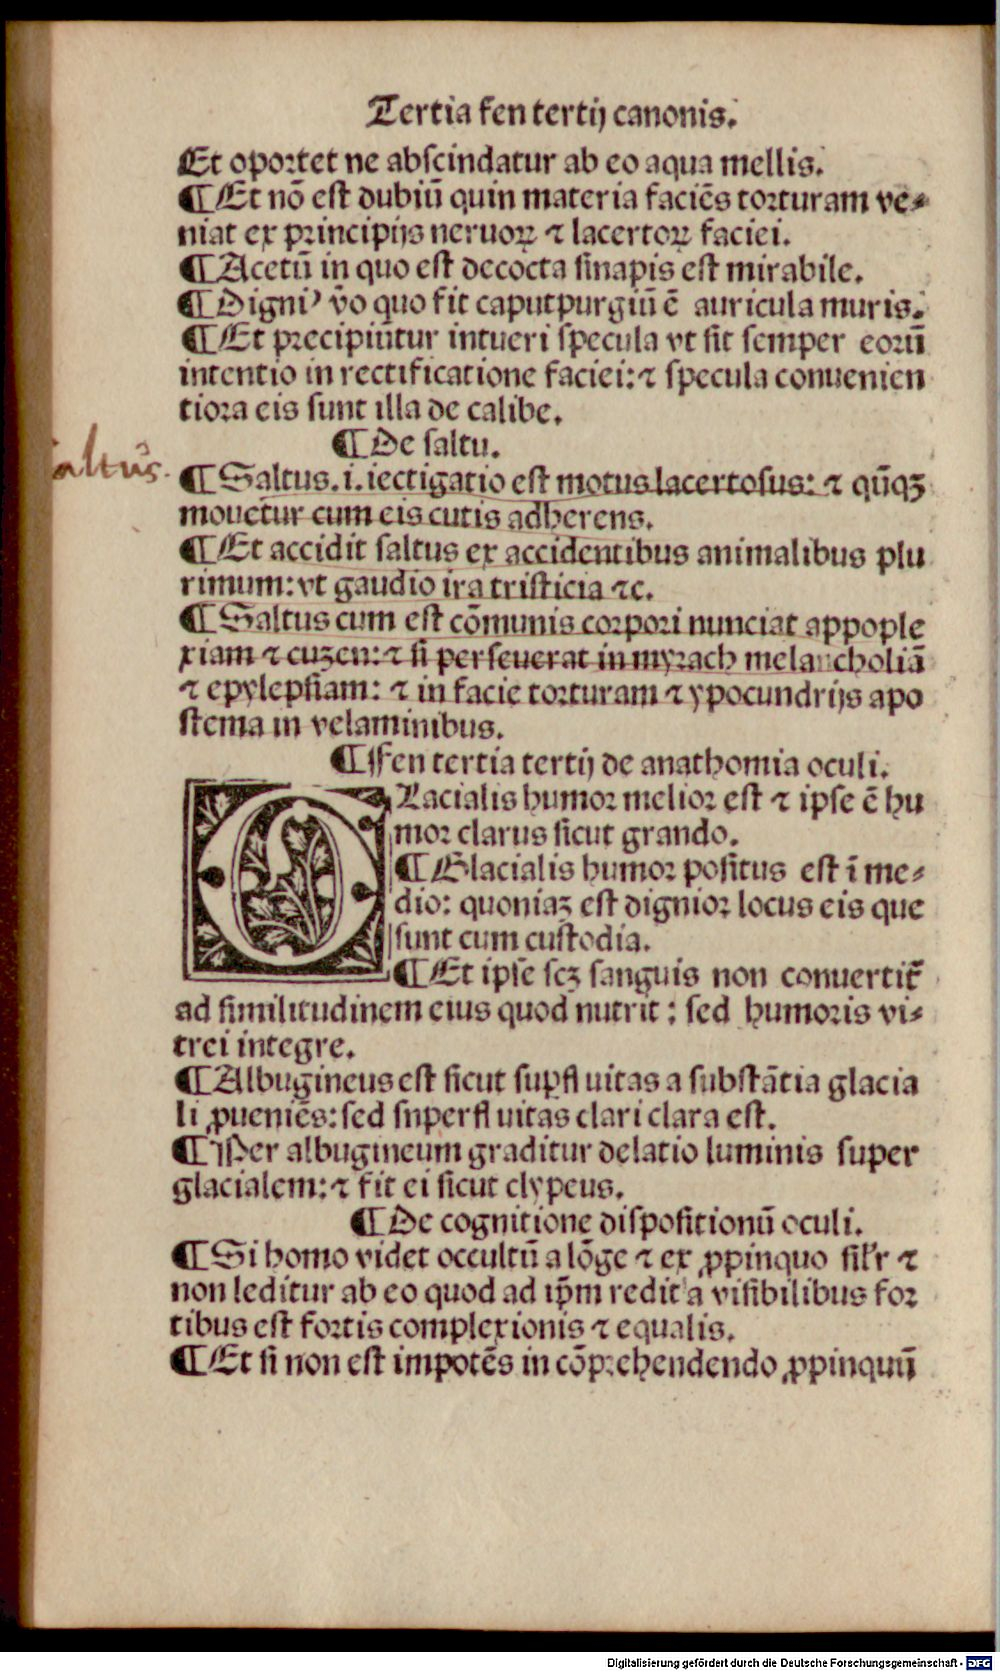 Tertia fen tertij canonis.
Et oportet ne abscindatur ab eo aqua mellis.
¶ Et nō est dubiū quin materia faciēs torturam ve-
niat ex principijs neruoꝝ ⁊ lacertoꝝ faciei.
¶ Acetū in quo est decocta sinapis est mirabile.
¶ Digniꝰ v̄o quo fit caputpurgiū ē auricula muris.
¶ Et precipiūtur intueri specula vt sit semper eorū
intentio in rectificatione faciei: ⁊ specula conuenien
tiora eis sunt illa de calibe.
¶ De saltu.
altus.
¶ Saltus .i. iectigatio est motus lacertosus: ⁊ qn̄qꝫ
mouetur cum eis cutis adherens.
¶ Et accidit saltus ex accidentibus animalibus plu
rimum: vt gaudio ira tristicia ⁊c.
¶ Saltus cum est cōmunis corpori nunciat appople
xiam ⁊ cuzen: ⁊ si perseuerat in myrach melancholiā
⁊ epylepsiam: ⁊ in facie torturam ⁊ ypocundrijs apo
stema in velaminibus.
¶ Fen tertia tertij de anathomia oculi.
GLacialis humor melior est ⁊ ipse ē hu
mor clarus sicut grando.
¶ Glacialis humor positus est ī me-
dio: quoniaꝫ est dignior locus eis que
sunt cum custodia.
¶ Et ipse scꝫ sanguis non conuertit̄
ad similitudinem eius quod nutrit: sed humoris vi-
trei integre.
¶ Albugineus est sicut suꝑfluitas a substātia glacia
li ꝓueniēs: sed snperfluitas clari clara est.
¶ Per albugineum graditur delatio luminis super
glacialem: ⁊ fit ei sicut clypeus.
¶ De cognitione dispositionū oculi.
¶ Si homo videt occultū a lōge ⁊ ex ꝓpinquo sil̄r ⁊
non leditur ab eo quod ad ip̄m redit a visibilibus for
tibus est fortis complexionis ⁊ equalis.
¶ Et si non est impotēs in cōprehendendo ꝓpinquū
Digitalisierung gefördert durch die Deutsche Forschungsgemeinschaft - DFG